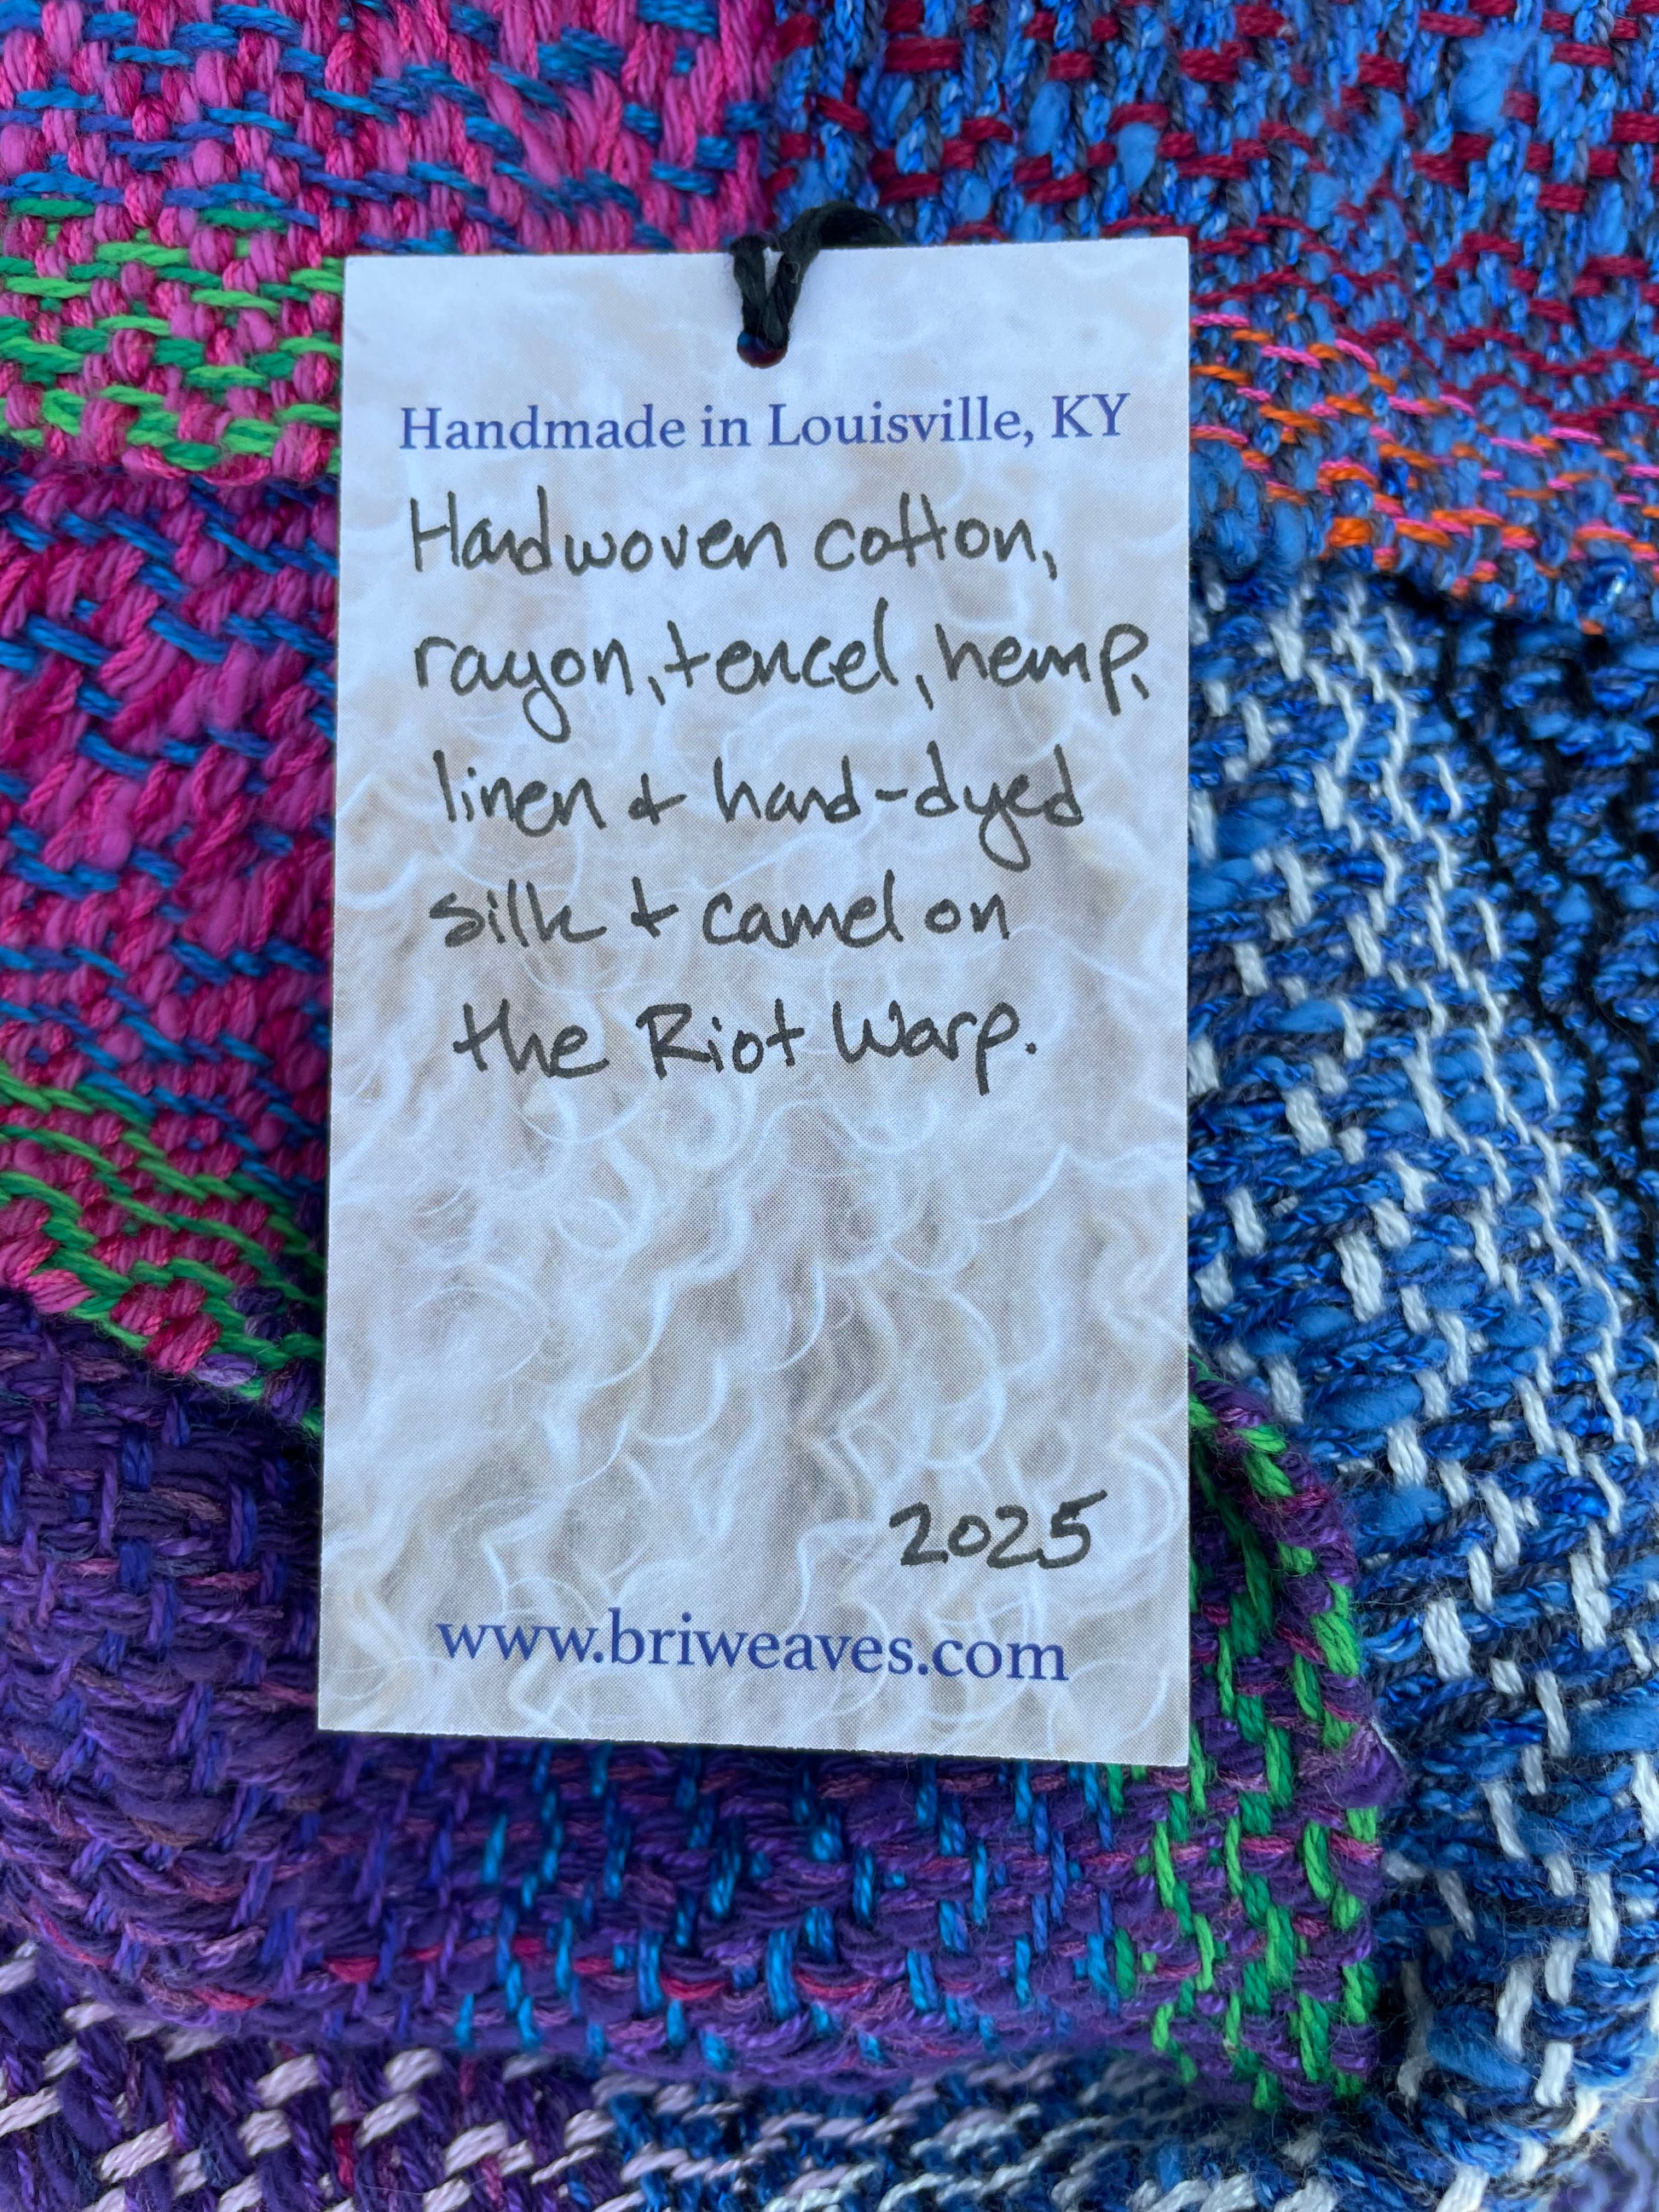 Handmade in Louisville, KY
Handwoven cotton,
rayon, tencel, hemp,
linen + hand-dyed
silk + camel on
the Riot Warp.
2025
www.briweaves.com